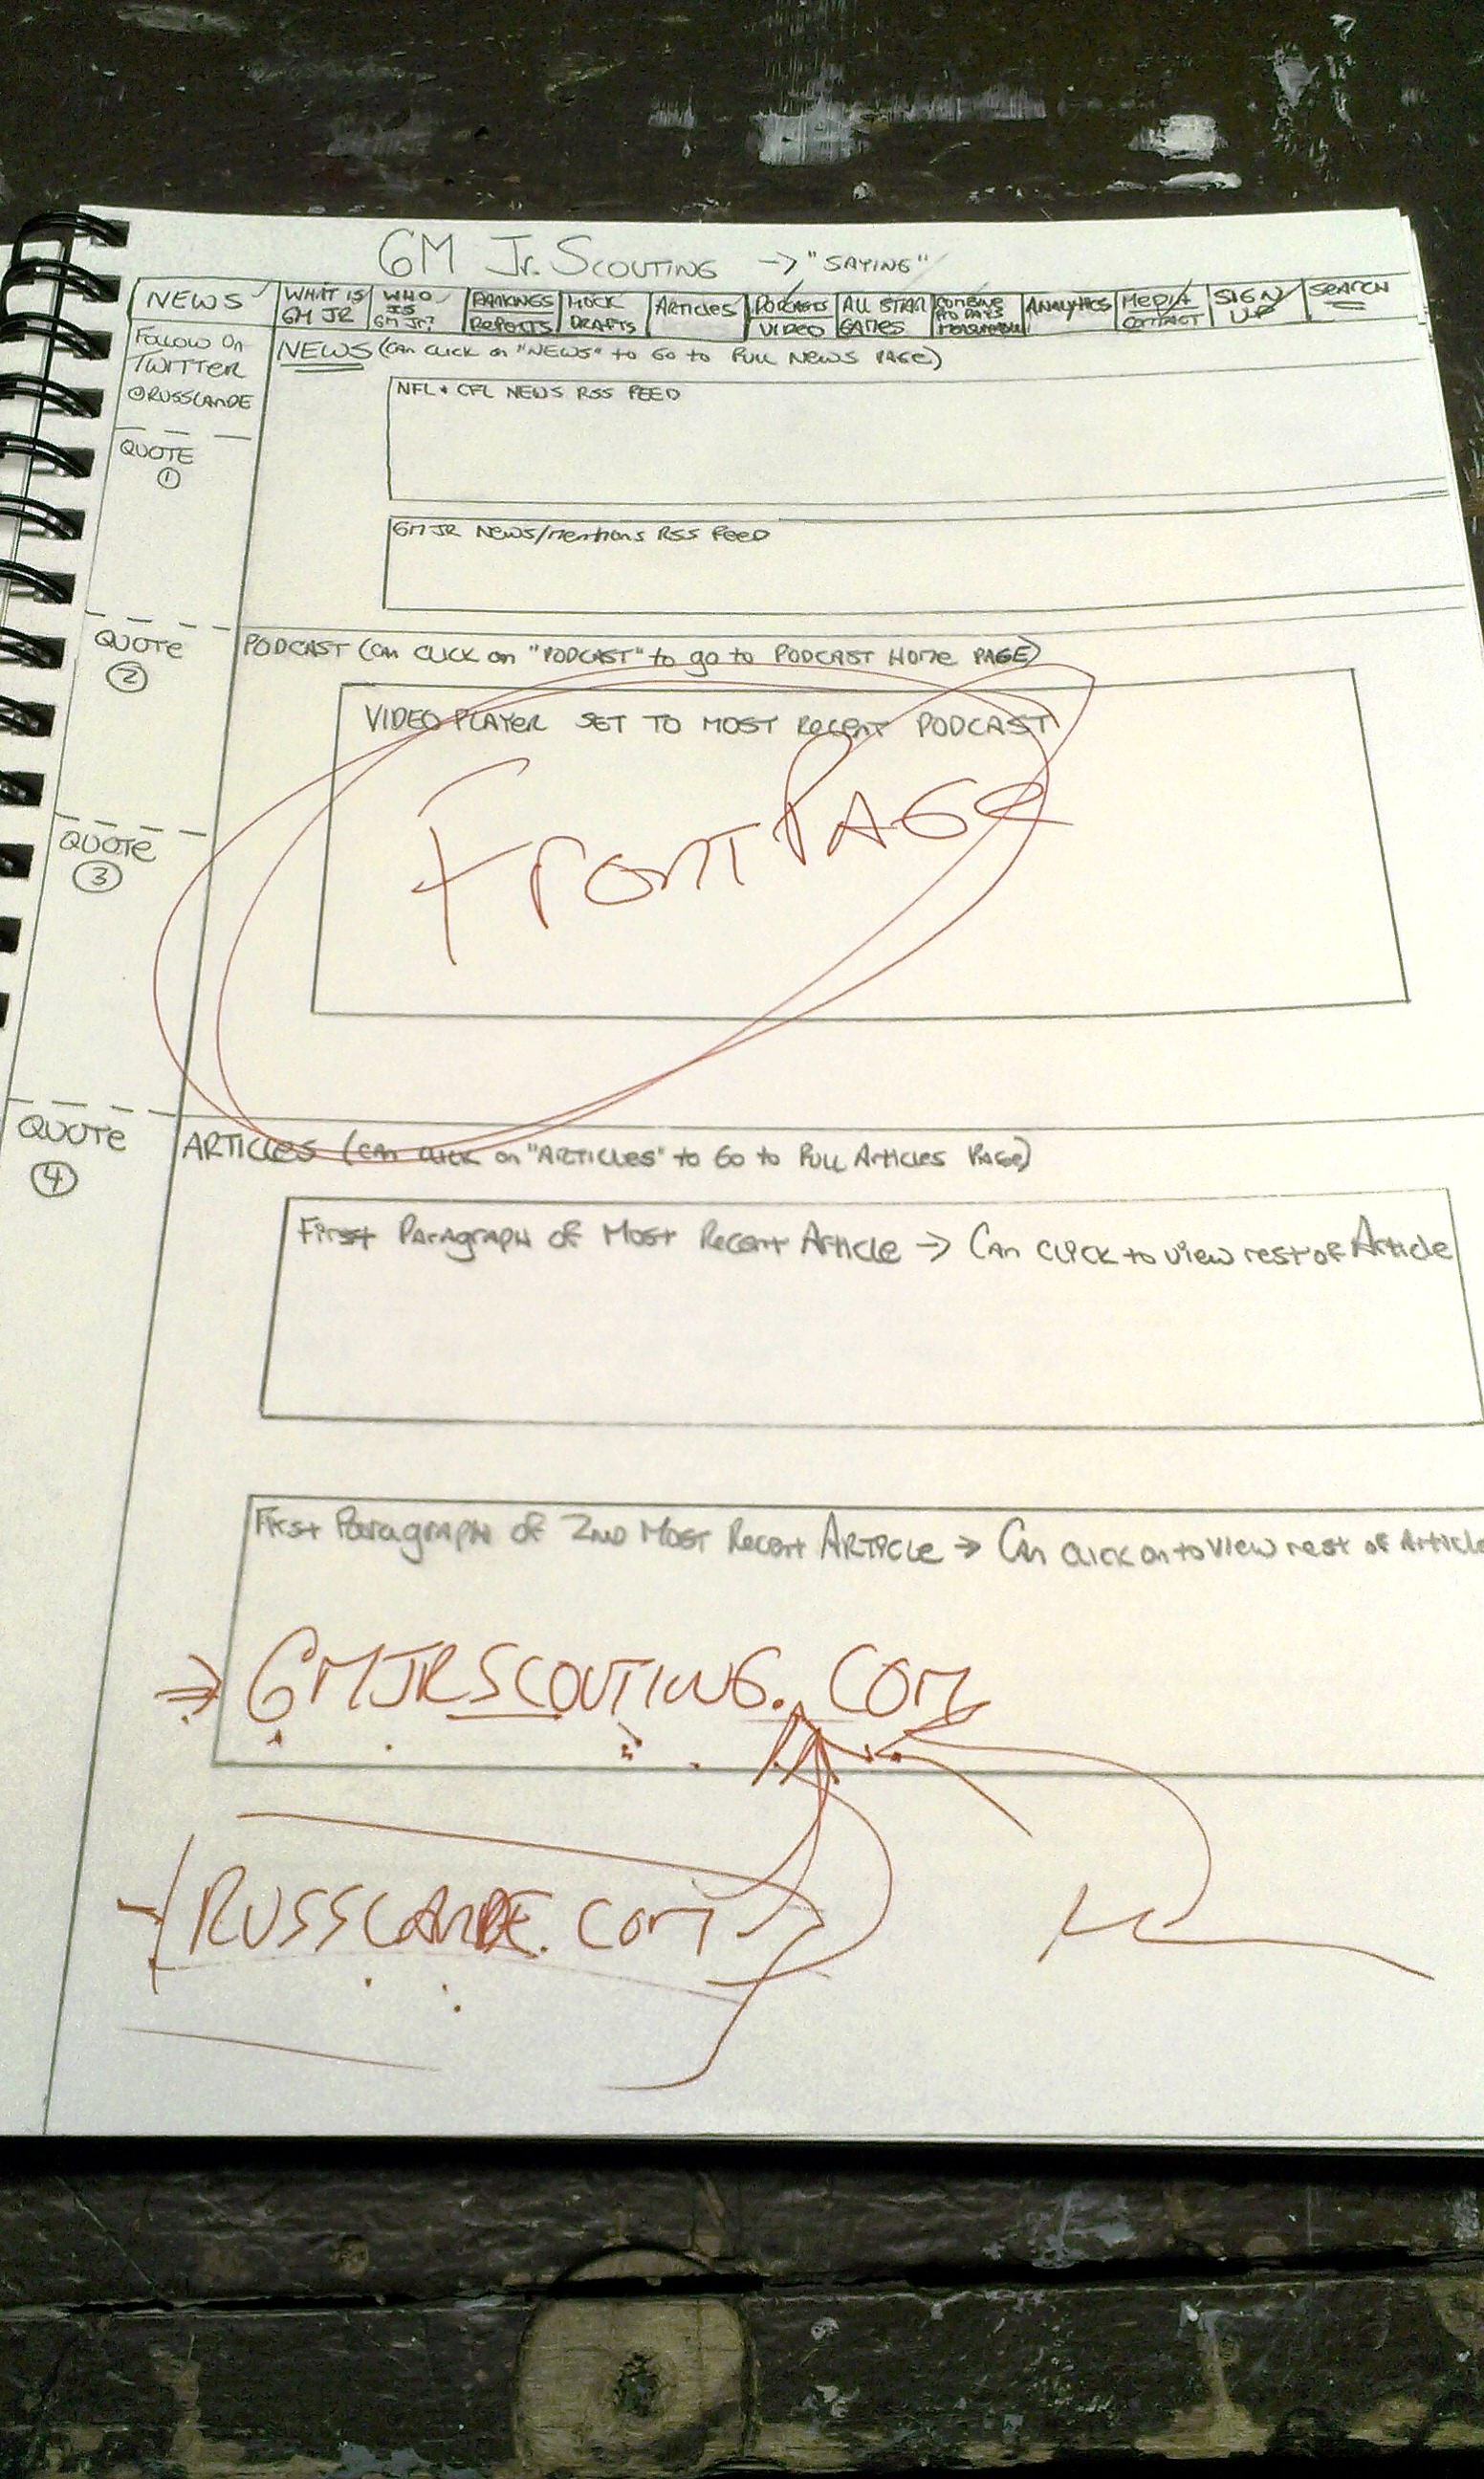 GM Jr. SCOUTING -> "SAYING"
NEWS
WHAT IS
GM JR
WHO
IS
GM Jr?
RANKINGS
REPORTS
MOCK
DRAFTS
ARTICLES
PODCASTS
VIDEO
ALL STAR
GAMES
COMBINE
PRO DAYS
MEASURABLES
ANALYTICS
MEDIA
CONTACT
SIGN
UP
SEARCH
FOLLOW ON
TWITTER
@RUSSLANDE
NEWS (CAN CLICK on "NEWS" to Go to FULL NEWS PAGE)
NFL + CFL NEWS RSS FEED
QUOTE
1
GM JR News/mentions RSS Feed
QUOTE
2
PODCAST (CAN CLICK on "PODCAST" to go to PODCAST HOME PAGE)
VIDEO PLAYER SET TO MOST RECENT PODCAST
Front PAGE
QUOTE
3
QUOTE
4
ARTICLES (CAN CLICK on "ARTICLES" to Go to FULL Articles PAGE)
First Paragraph of Most Recent Article -> CAn CLICK to view rest of Article
First Paragraph of 2ND Most Recent ARTICLE -> CAn CLICK on to view rest of Article
=> GMJRSCOUTING.COM
RUSSLANDE.COM